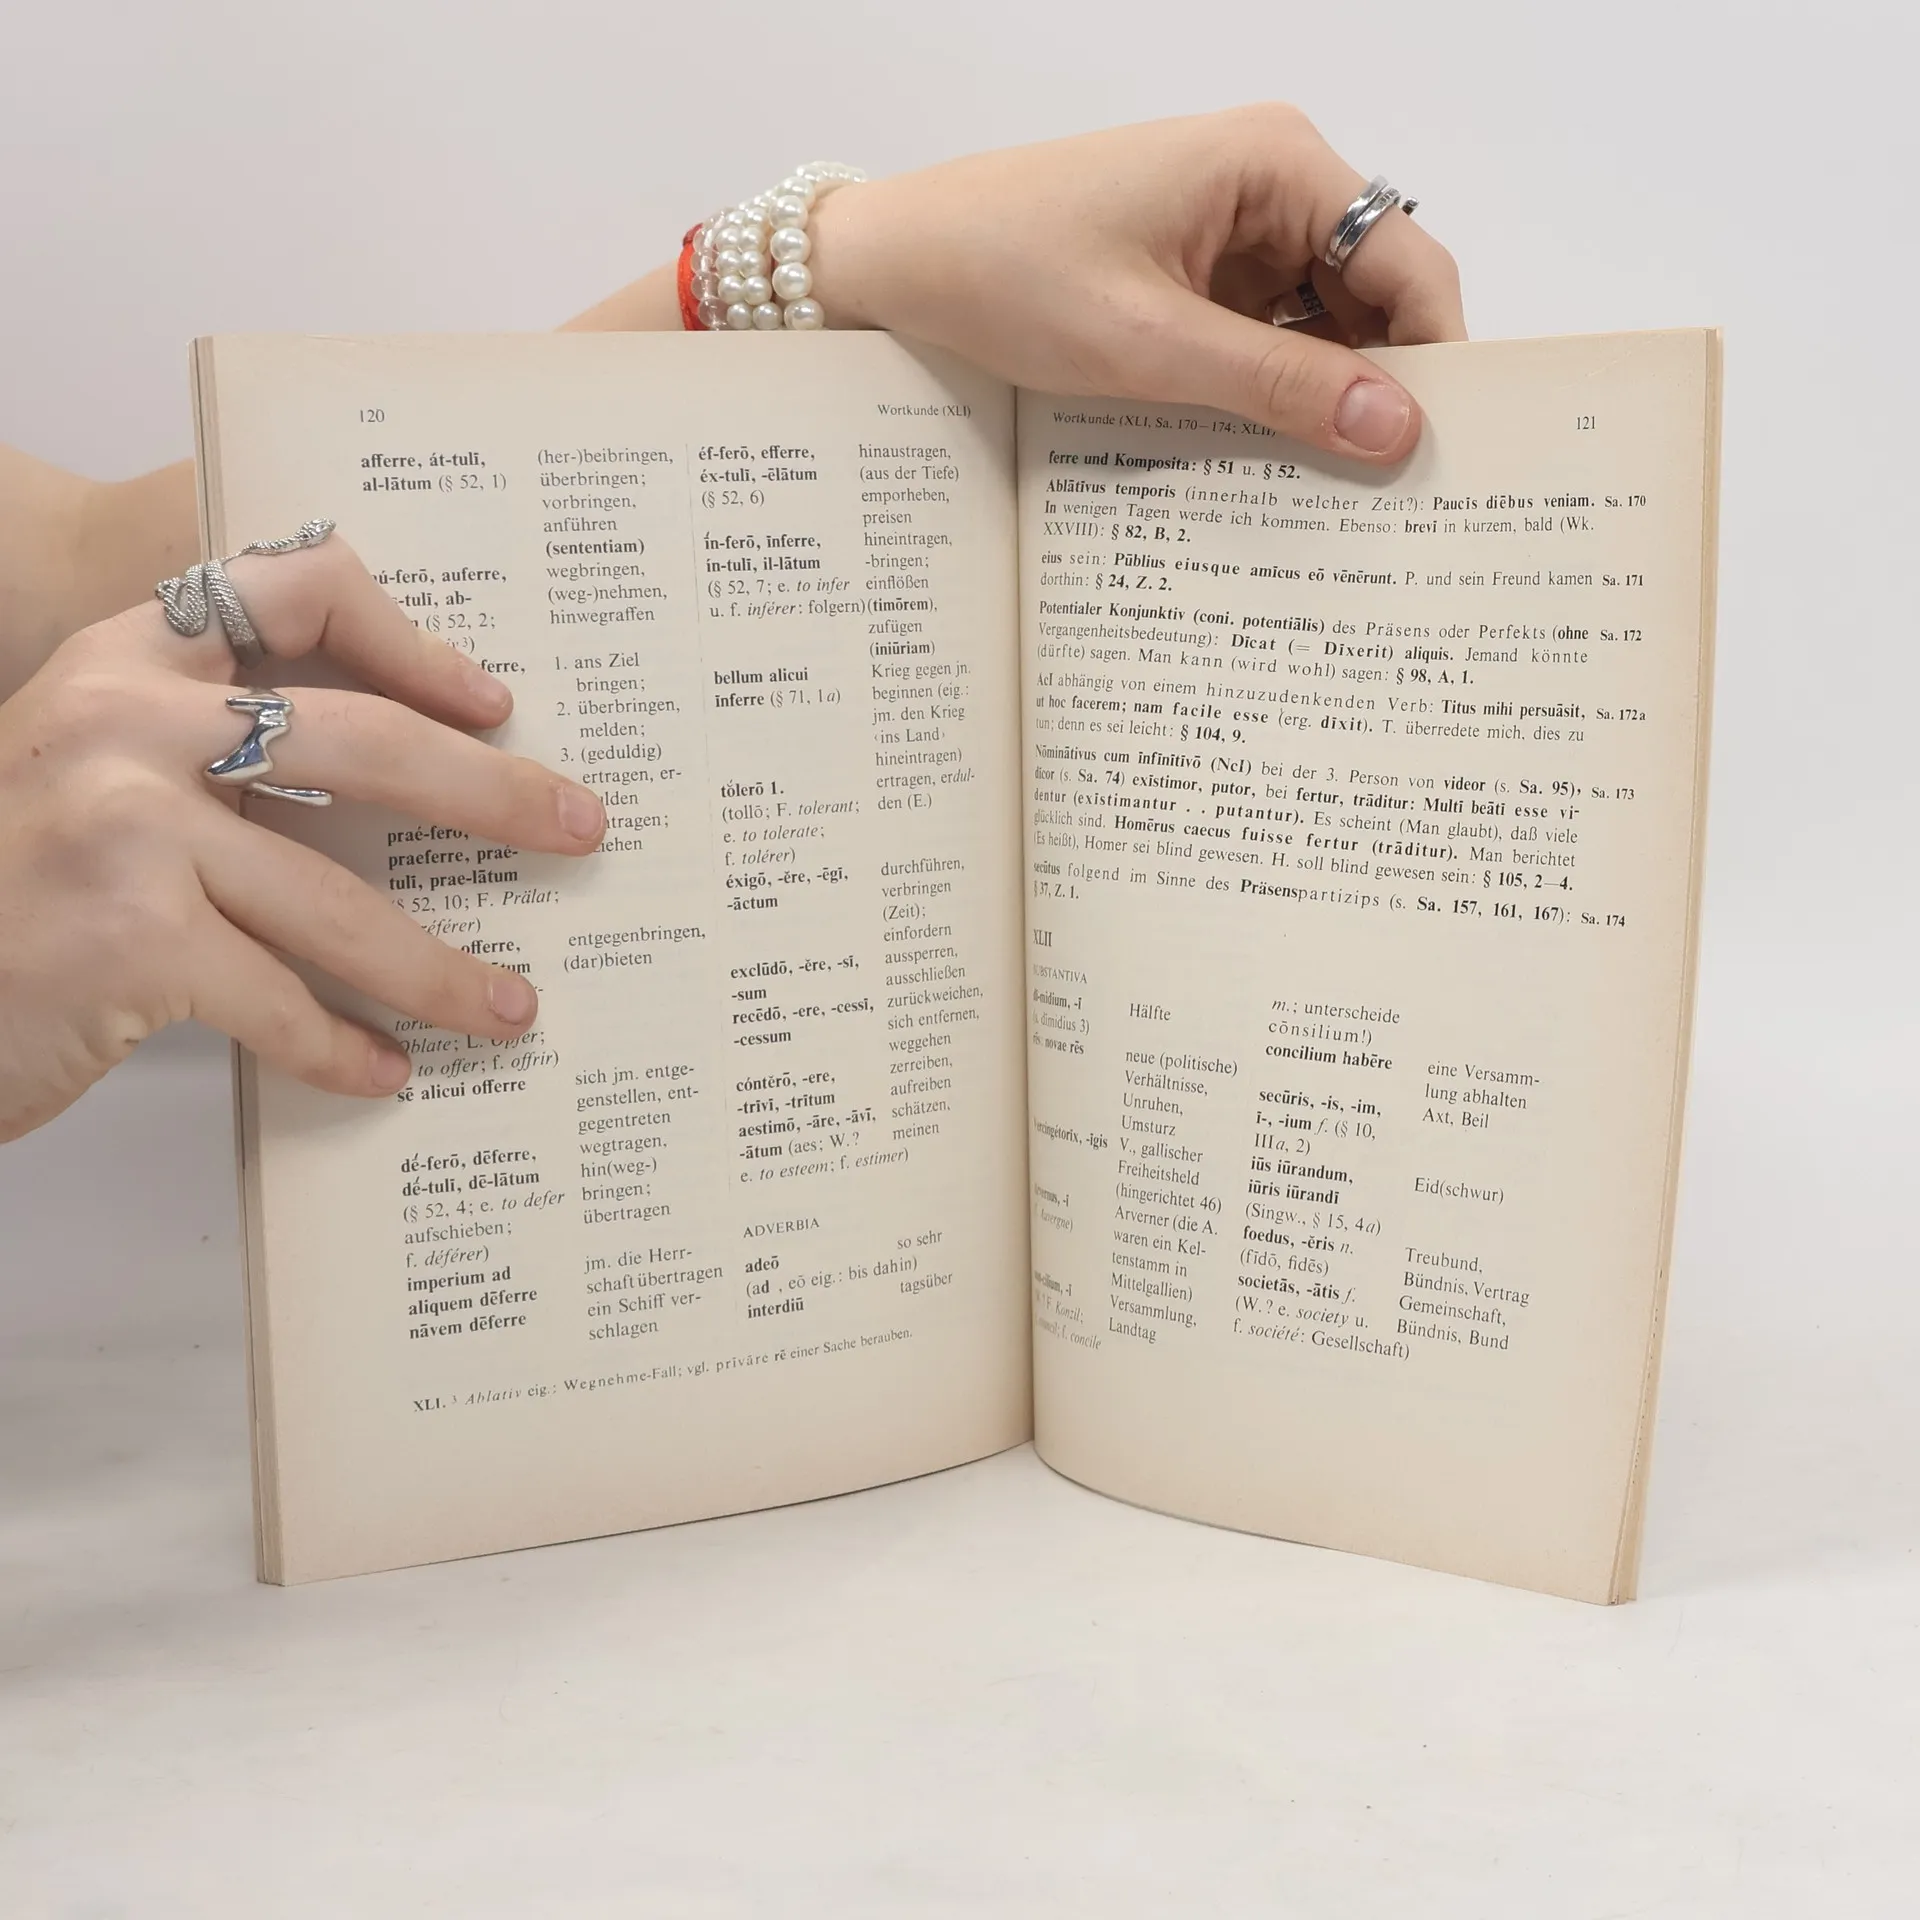 120
Wortkunde (XLI)
afferre, át-tulī,
al-lātum (§ 52, 1)
-ferō, auferre,
-tulī, ab-
(§ 52, 2;
ferre,
praé-ferō,
praeferre, praé-
tulī, prae-lātum
§ 52, 10; F. Prälat;
offerre,
Oblate; L. Opfer;
to offer; f. offrir)
sē alicui offerre
dḗ-ferō, dēferre,
dḗ-tulī, dē-lātum
(§ 52, 4; e. to defer
aufschieben;
f. déférer)
imperium ad
aliquem dēferre
nāvem dēferre
(her-)beibringen,
überbringen;
vorbringen,
anführen
(sententiam)
wegbringen,
(weg-)nehmen,
hinwegraffen
1. ans Ziel
bringen;
2. überbringen,
melden;
3. (geduldig)
ertragen, er-
entgegenbringen,
(dar)bieten
sich jm. entge-
genstellen, ent-
gegentreten
wegtragen,
hin(weg-)
bringen;
übertragen
jm. die Herr-
schaft übertragen
ein Schiff ver-
schlagen
éf-ferō, efferre,
éx-tulī, -ēlātum
(§ 52, 6)
ī́n-ferō, īnferre,
ín-tulī, il-lātum
(§ 52, 7; e. to infer
u. f. inférer: folgern)
bellum alicui
īnferre (§ 71, 1a)
tólerō 1.
(tollō; F. tolerant;
e. to tolerate;
f. tolérer)
éxigō, -ĕre, -ēgī,
-āctum
exclūdō, -ĕre, -sī,
-sum
recēdō, -ere, -cessī,
-cessum
cóntĕrō, -ere,
-trīvī, -trītum
aestimō, -āre, -āvī,
-ātum (aes; W.?
e. to esteem; f. estimer)
ADVERBIA
adeō
(ad , eō eig.: bis dahin)
interdiū
hinaustragen,
(aus der Tiefe)
emporheben,
preisen
hineintragen,
-bringen;
einflößen
(timōrem),
zufügen
(iniūriam)
Krieg gegen jn.
beginnen (eig.:
jm. den Krieg
‹ins Land›
hineintragen)
ertragen, erdul-
den (E.)
durchführen,
verbringen
(Zeit);
einfordern
aussperren,
ausschließen
zurückweichen,
sich entfernen,
weggehen
zerreiben,
aufreiben
schätzen,
meinen
so sehr
tagsüber
XLI. ³ Ablativ eig.: Wegnehme-Fall; vgl. prīvāre rē einer Sache berauben.
Wortkunde (XLI, Sa. 170—174; XLII)
121
ferre und Komposita: § 51 u. § 52.
Ablātīvus temporis (innerhalb welcher Zeit?): Paucīs diēbus veniam. Sa. 170
In wenigen Tagen werde ich kommen. Ebenso: brevī in kurzem, bald (Wk.
XXVIII): § 82, B, 2.
eius sein: Pūblius eiusque amīcus eō vēnērunt. P. und sein Freund kamen Sa. 171
dorthin: § 24, Z. 2.
Potentialer Konjunktiv (coni. potentiālis) des Präsens oder Perfekts (ohne Sa. 172
Vergangenheitsbedeutung): Dīcat (= Dīxerit) aliquis. Jemand könnte
(dürfte) sagen. Man kann (wird wohl) sagen: § 98, A, 1.
AcI abhängig von einem hinzuzudenkenden Verb: Titus mihi persuāsit, Sa. 172a
ut hoc facerem; nam facile esse (erg. dīxit). T. überredete mich, dies zu
tun; denn es sei leicht: § 104, 9.
Nōminātīvus cum īnfīnītīvō (NcI) bei der 3. Person von videor (s. Sa. 95), Sa. 173
dīcor (s. Sa. 74) exīstimor, putor, bei fertur, trāditur: Multī beātī esse vi-
dentur (exīstimantur . . putantur). Es scheint (Man glaubt), daß viele
glücklich sind. Homērus caecus fuisse fertur (trāditur). Man berichtet
(Es heißt), Homer sei blind gewesen. H. soll blind gewesen sein: § 105, 2—4.
secūtus folgend im Sinne des Präsenspartizips (s. Sa. 157, 161, 167): Sa. 174
§ 37, Z. 1.
XLII
SUBSTANTIVA
dī-midium, -ī
(s. dimidius 3)
rēs: novae rēs
Vercingétorīx, -īgis
Arvernus, -ī
Auvergne)
con-cilium, -ī
F. Konzil;
council; f. concile
Hälfte
neue (politische)
Verhältnisse,
Unruhen,
Umsturz
V., gallischer
Freiheitsheld
(hingerichtet 46)
Arverner (die A.
waren ein Kel-
tenstamm in
Mittelgallien)
Versammlung,
Landtag
m.; unterscheide
cōnsilium!)
concilium habēre
secūris, -is, -im,
ī-, -ium f. (§ 10,
IIIa, 2)
iūs iūrandum,
iūris iūrandī
(Singw., § 15, 4a)
foedus, -ĕris n.
(fīdō, fidēs)
societās, -ātis f.
(W.? e. society u.
f. société: Gesellschaft)
eine Versamm-
lung abhalten
Axt, Beil
Eid(schwur)
Treubund,
Bündnis, Vertrag
Gemeinschaft,
Bündnis, Bund